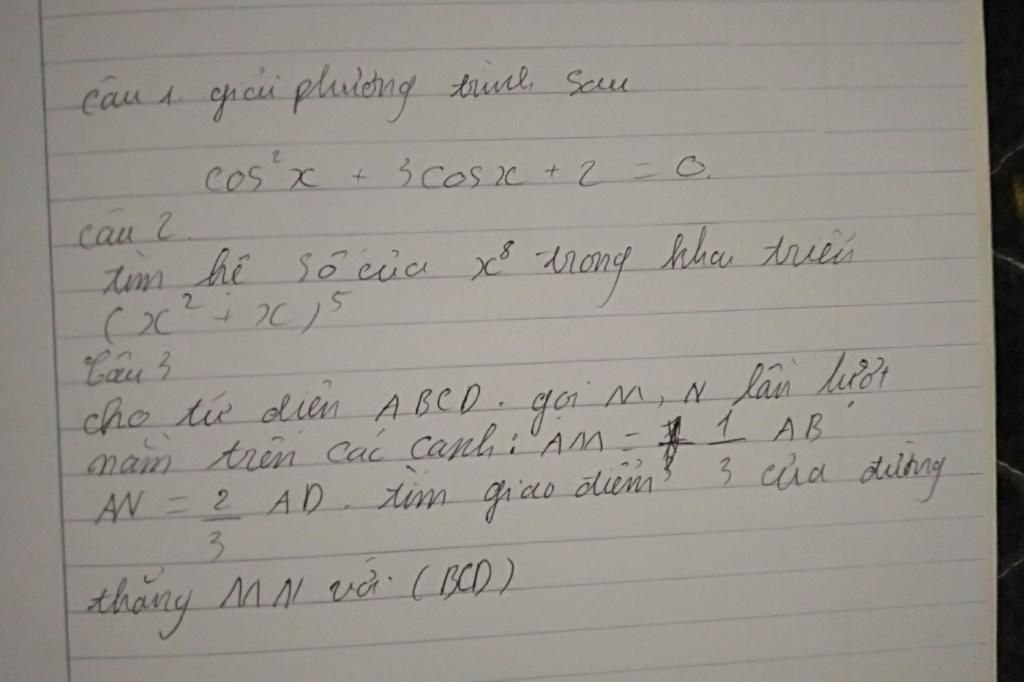 Câu 1. giải phương trình sau
cos²x + 3cosx + 2 = 0.
câu 2.
tìm hệ số của x⁸ trong khai triển
(x² + x)⁵
Câu 3
cho tứ diện ABCD. gọi M, N lần lượt
nằm trên các cạnh: AM = 1/3 AB
AN = 2/3 AD. tìm giao điểm của đường
thẳng MN với (BCD)